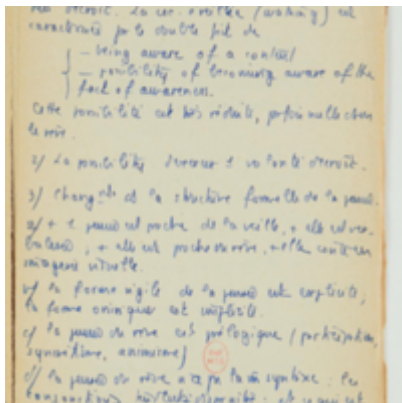 décroît. La (waking) est
caractérisée par le double fait de
— being aware of a content
— possibility of becoming aware of the
fact of awareness.
Cette possibilité est très réduite, parfois nulle dans
le rêve.
2/ La possibilité d'exercer 1 volonté décroît.
3/ Chang^ts de la structure formelle de la pensée.
a/ + 1 pensée est proche de la veille, + elle est ver-
balisée ; + elle est proche du rêve, + elle contient
imagerie visuelle.
b/ la forme vigile de la pensée est explicite,
la forme onirique est implicite.
c/ la pensée du rêve est prélogique (participation,
syncrétisme, animisme)
d/ la pensée du rêve n'a pas la syntaxe : les
conjonctions ; et